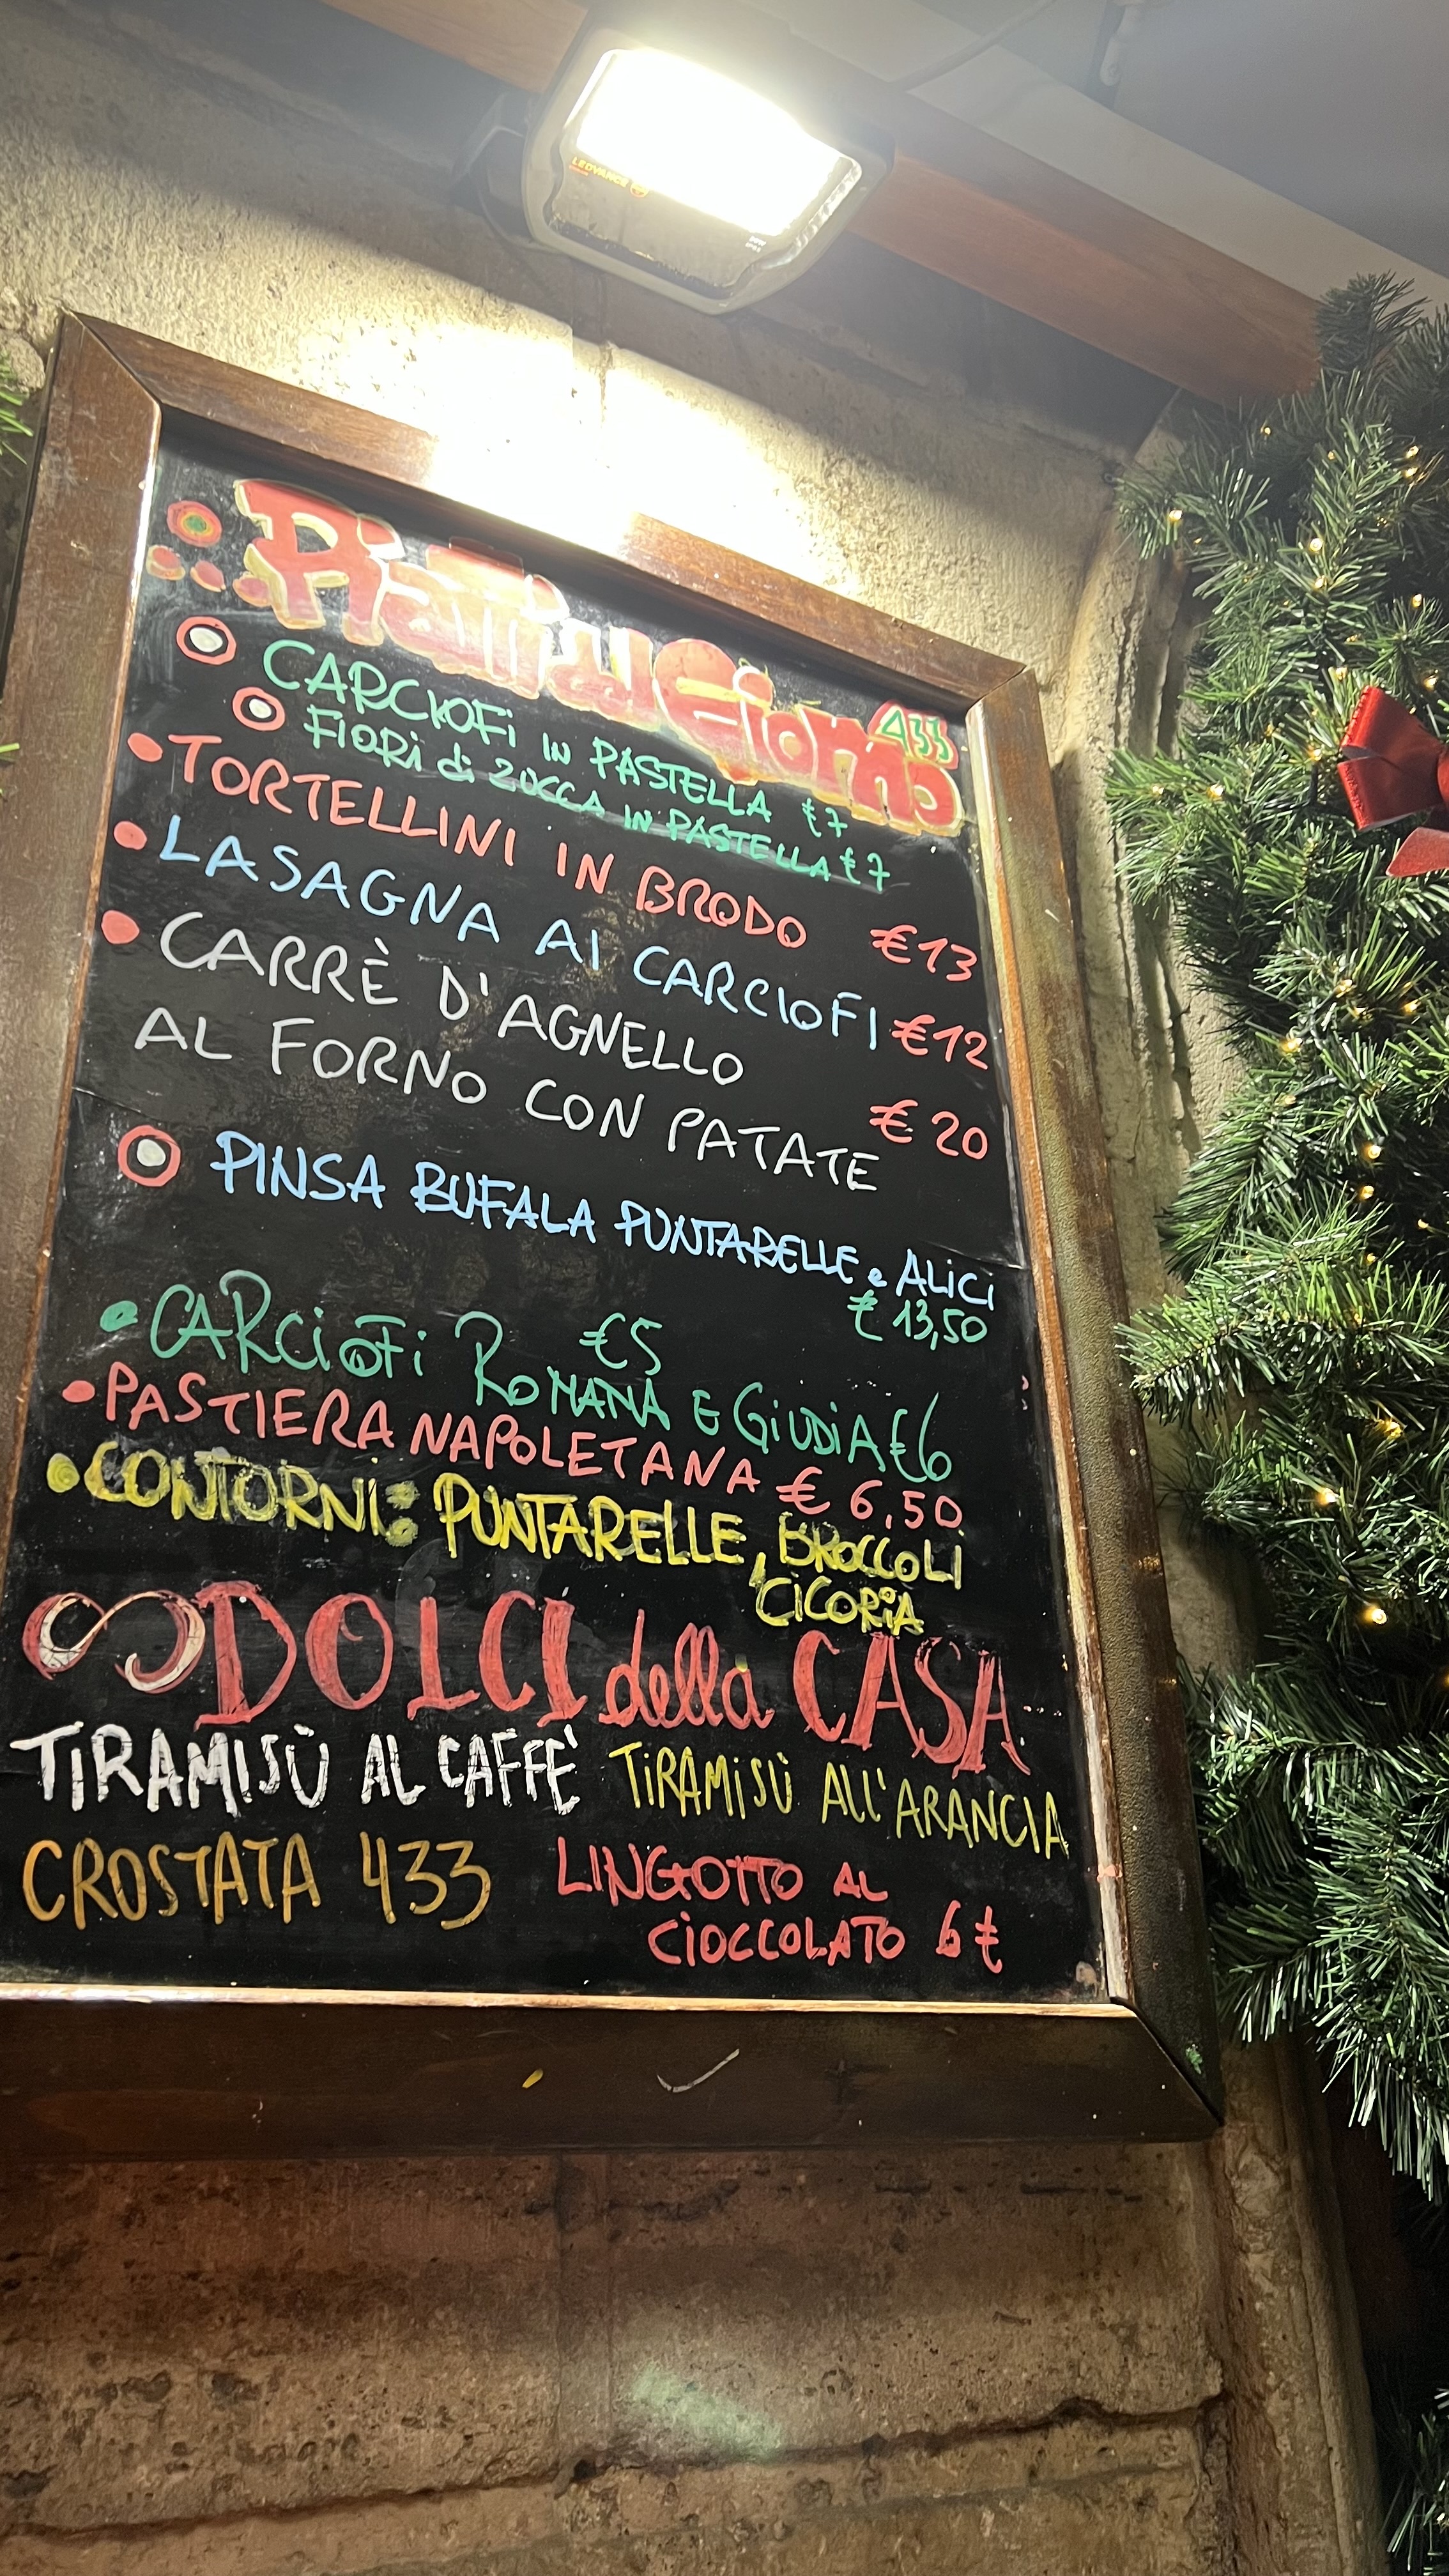 LEDVANCE
Piatti del Giorno
433
CARCIOFi IN PASTELLA €7
FIORi di ZUCCA IN PASTELLA €7
TORTELLINI IN BRODO €13
LASAGNA AI CARCIOFI €12
CARRÈ D'AGNELLO
AL FORNO CON PATATE €20
PINSA BUFALA PUNTARELLE e ALiCi
€13,50
CARCiOFi ROMANA €5 E GiUDiA €6
PASTIERA NAPOLETANA € 6,50
CONTORNI: PUNTARELLE, BROCCOLI
CICORiA
DOLCI della CASA
TiRAMISÙ AL CAFFE' TiRAMiSÙ ALL'ARANCIA
CROSTATA 433
LINGOTTO AL
CiOCCOLATO 6€